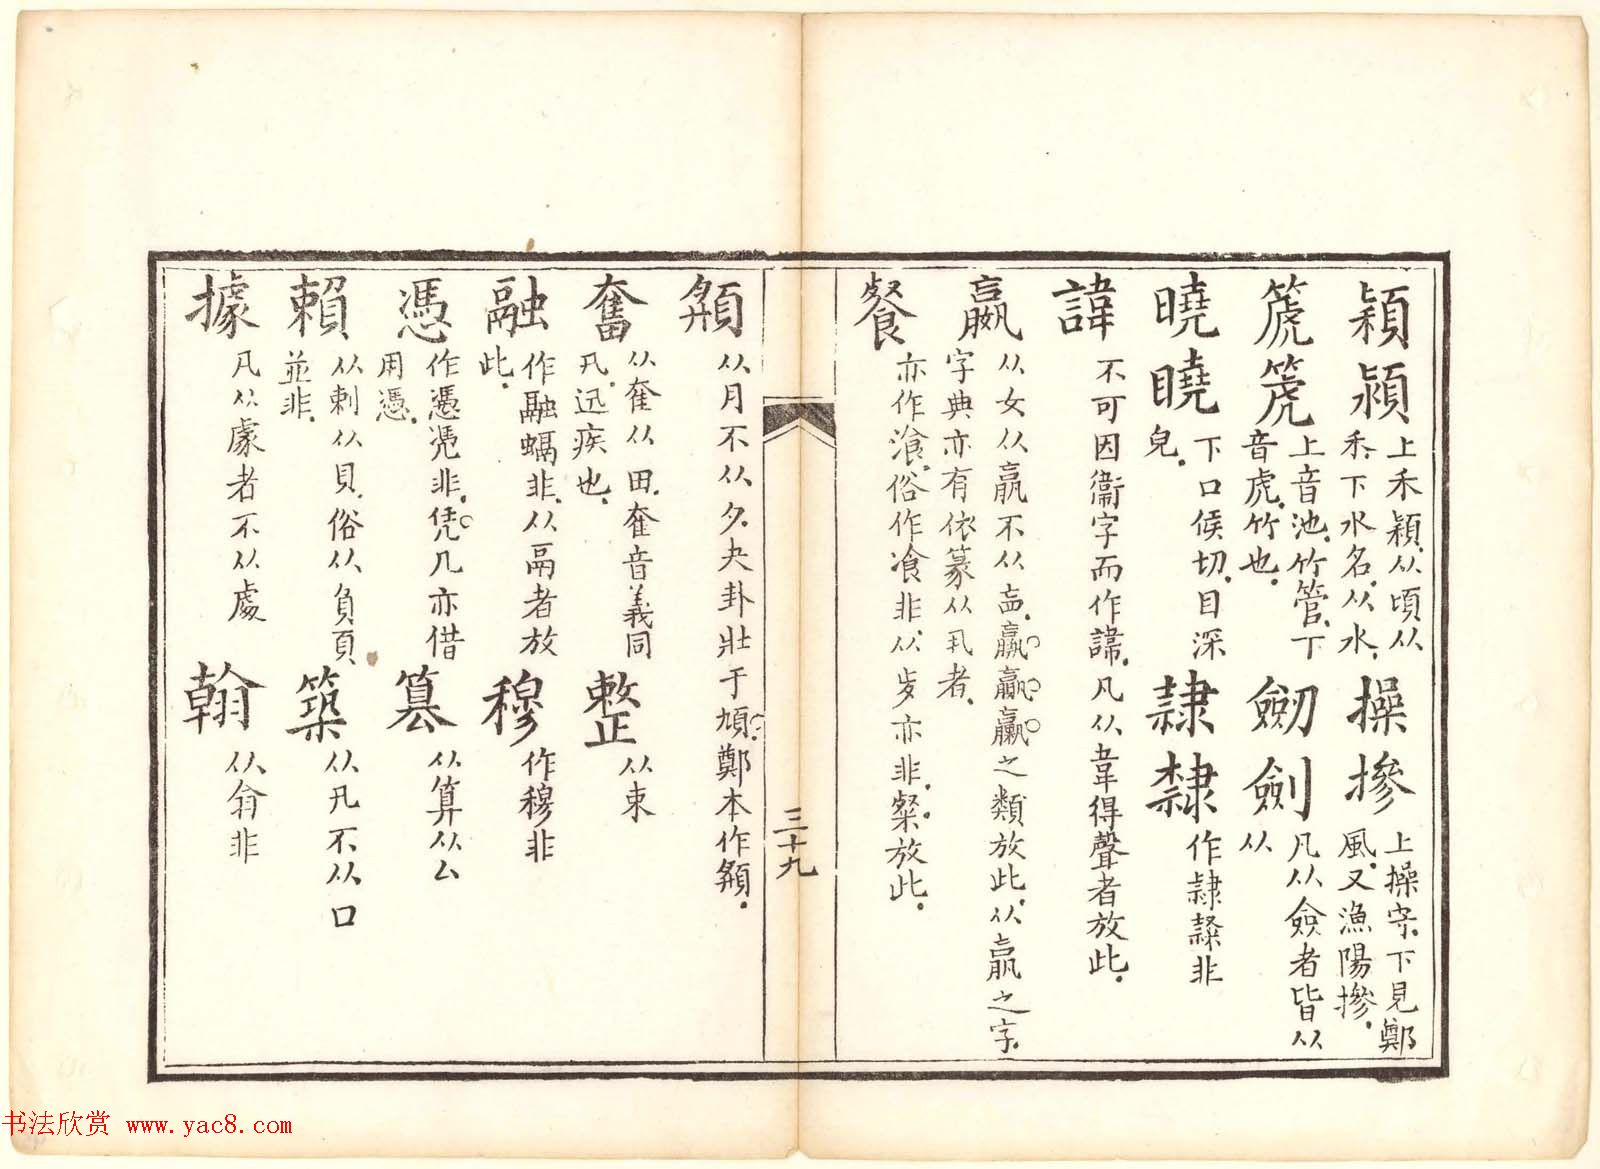 穎潁
上禾穎.从頃从
禾.下水名.从水.
操摻
上操守.下見鄭
風.又漁陽摻.
篪箎
上音池.竹管.下
音虎.竹也.
劒劍
凡从僉者皆从
从
曉瞘
下口侯切.目深
皃.
隷隸
作隷𨽻非
諱
不可因衞字而作諱.凡从韋得聲者放此.
嬴
从女从𣎆不从𠅘.羸臝贏之類放此.从𣎆之字
字典亦有依篆从丮者.
餐
亦作湌.俗作飡非.从歺亦非.粲放此.
頯
从月不从夕.夬卦壯于頄.鄭本作頯.
奮
从奞从田.奞音義同
卂.迅疾也.
整
从束
融
作螎䗦非.从鬲者放
此.
穆
作穆非
憑
作凴凭非.凭几亦借
用憑.
篡
从算从厶
賴
从剌从貝.俗从負頁
並非.
築
从卂不从口
據
凡从豦者不从處
翰
从翕非
三十九
书法欣赏 www.yac8.com